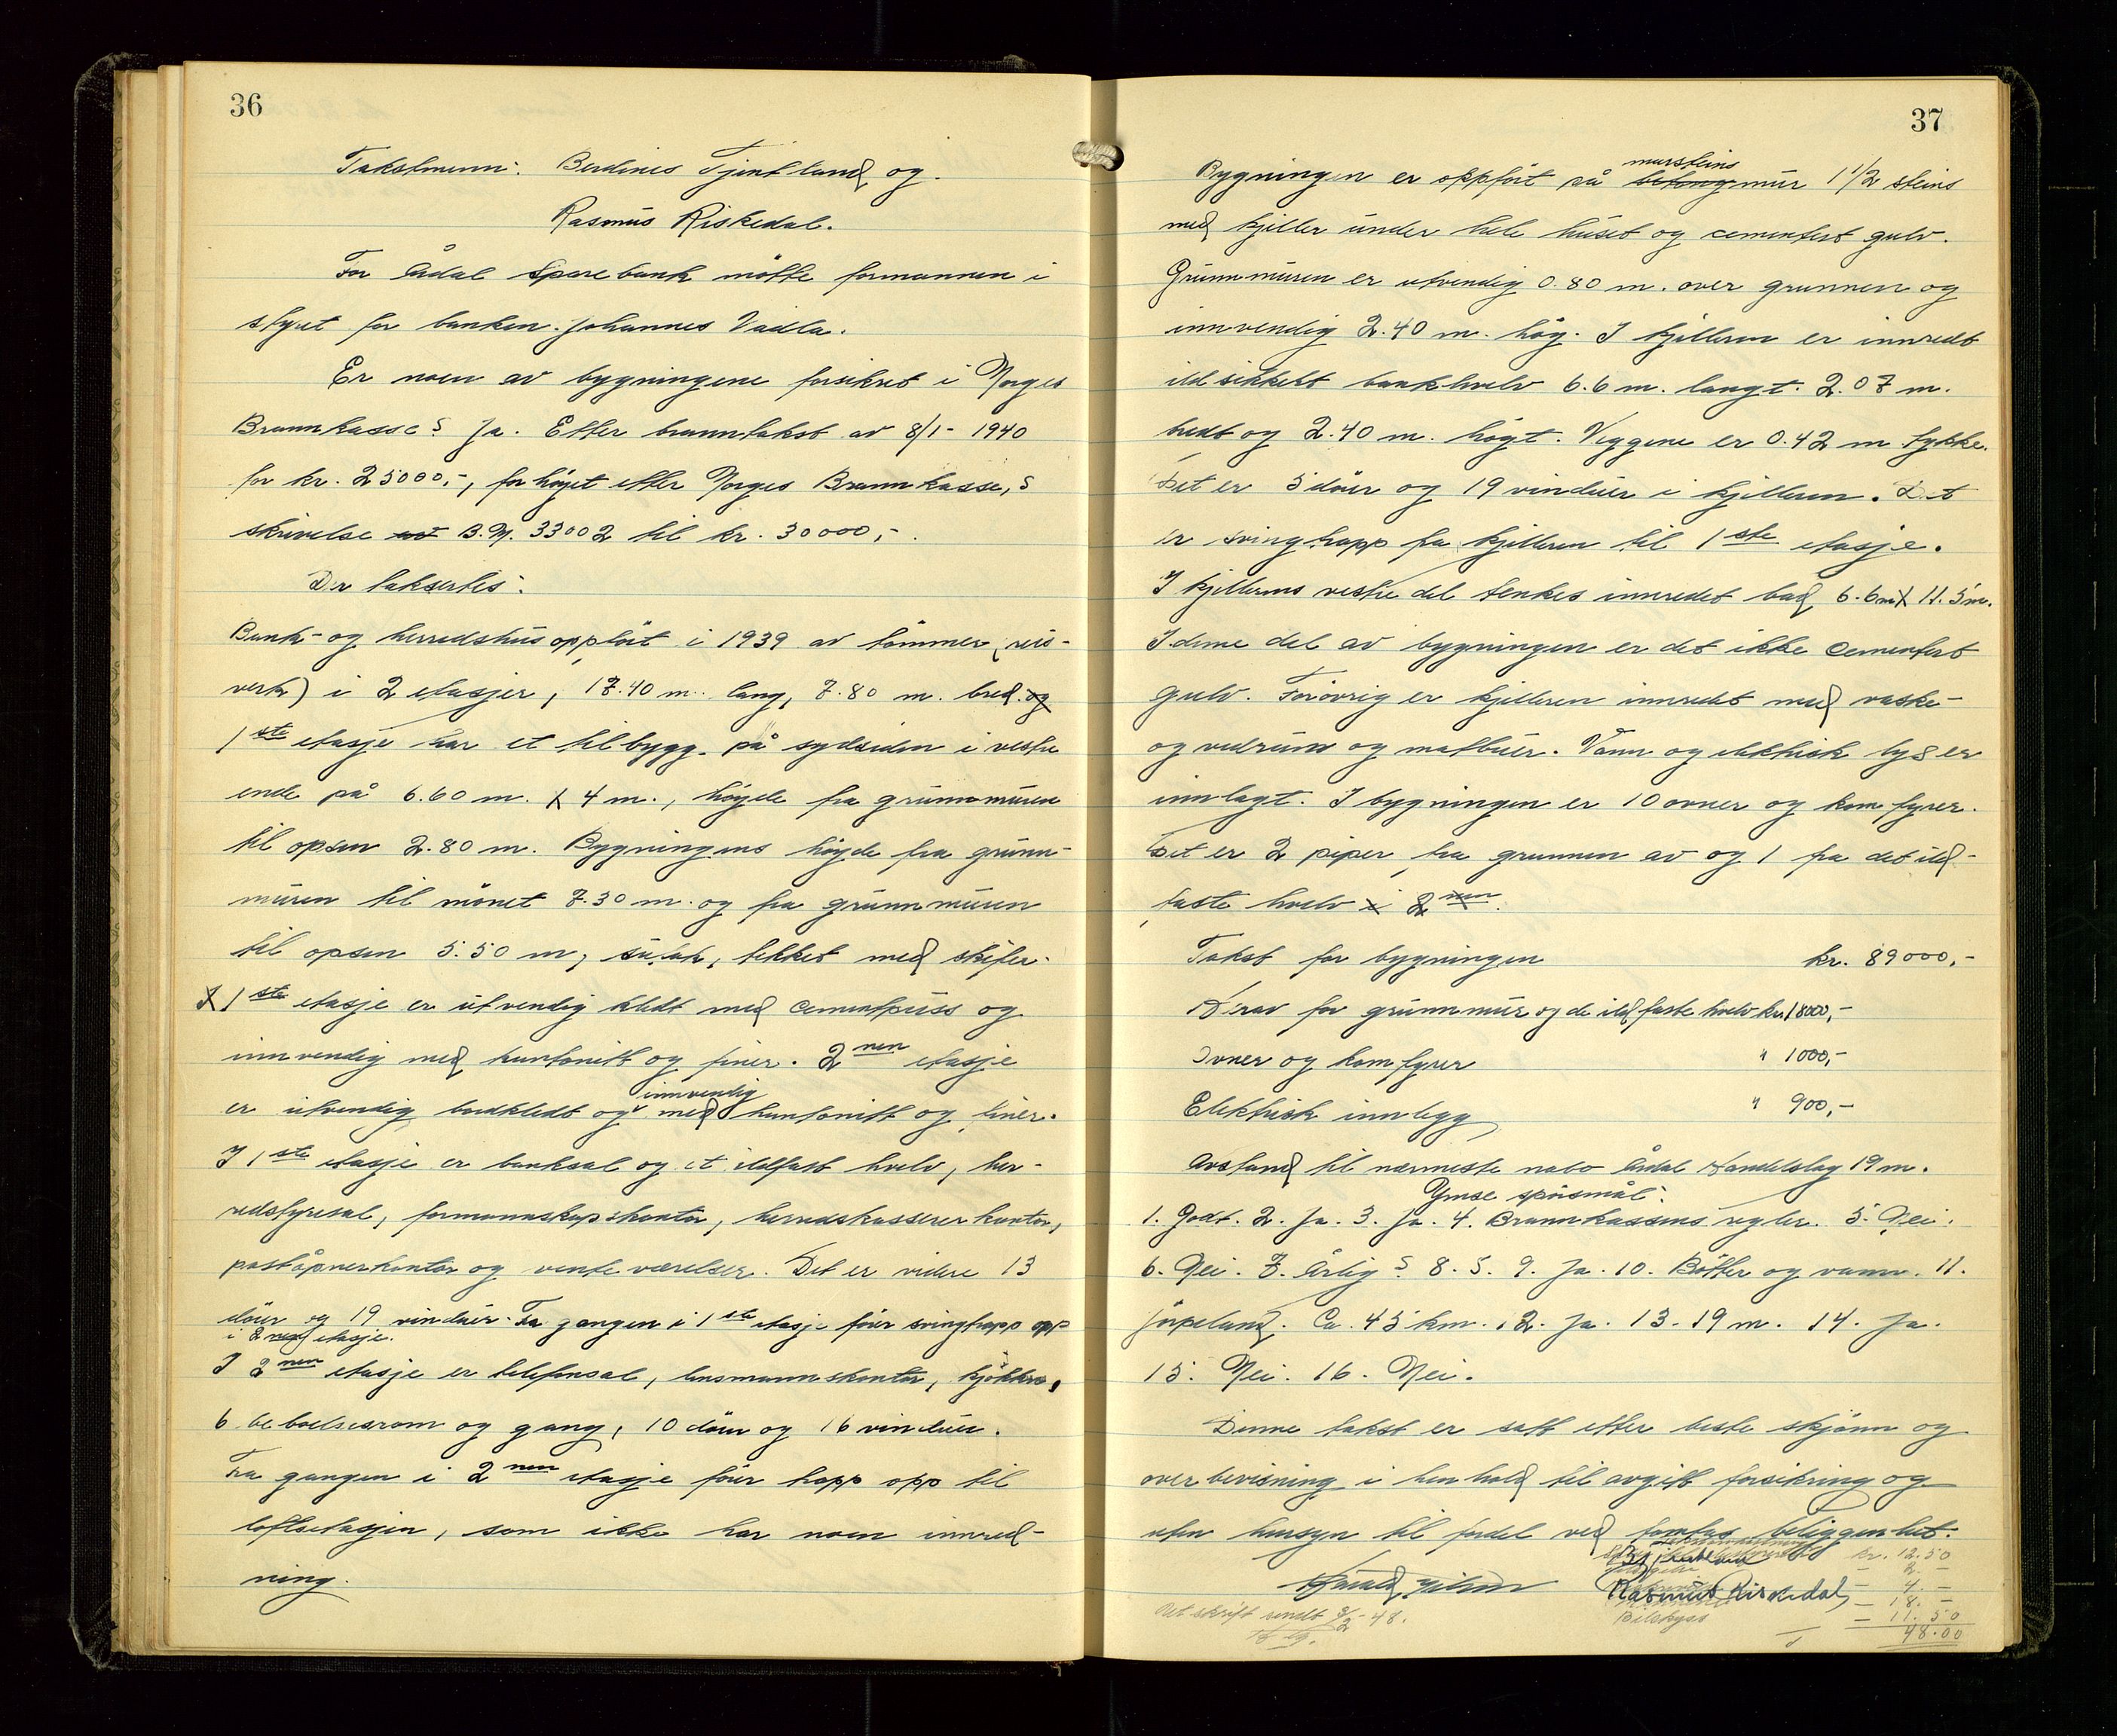 36
Takstmenn: Berdines Tjentland og
Rasmus Riskedal.
For Årdal Sparebank møtte formannen i
styret for banken Johannes Vadla.
Er noen av bygningene forsikret i Norges
Brannkasse? Ja. Etter branntakst av 8/1- 1940
for kr. 25000,-, forhøyet etter Norges Brannkasse,s
skrivelse B.N. 33002 til kr. 30000,-.
Der taksertes:
Bank- og herredshus oppført i 1939 av tømmer (reis-
verk) i 2 etasjer, 17.40 m. lang, 7.80 m. bred. og
1ste etasje har et tilbygg på sydsiden i vestre
ende på 6.60 m. x 4 m., høyde fra grunnmuren
til opsen 2.80 m. Bygningens høyde fra grunn-
muren til mønet 7.30 m. og fra grunnmuren
til opsen 5.50 m, sutak, tekket med skifer.
I 1ste etasje er utvendig kledt med cementpuss og
innvendig med huntonitt og finer. 2nen etasje
er utvendig bordkledt og innvendig med huntonitt og finer.
I 1ste etasje er banksal og et ildfast hvelv, her-
redstyresal, formannskapskontor, herredskassererkontor,
poståpnerkontor og venteværelser. Det er videre 13
dører og 19 vinduer. Fra gangen i 1ste etasje fører svingtrapp opp
i 2nen etasje.
I 2nen etasje er telefonsal, lensmannskontor, kjøkken,
6 beboelsesrom og gang, 10 dører og 16 vinduer.
Fra gangen i 2nen etasje fører trapp opp til
loftsetasjen, som ikke har noen innred-
ning.
37
Bygningen er oppført på betong mursteins mur 1 1/2 steins
med kjeller under hele huset og cementert gulv.
Grunnmuren er utvendig 0.80 m. over grunnen og
innvendig 2.40 m. høg. I kjelleren er innredt
ildsikkert bankhvelv 6.6 m. langt. 2.07 m.
bredt og 2.40 m. høgt. Veggene er 0.42 m tykke.
Det er 5 dører og 19 vinduer i kjelleren. Det
er svingtrapp fra kjelleren til 1ste etasje.
I kjellerens vestre del tenkes innredet bad 6.6m x 11.5m.
I denne del av bygningen er det ikke cementert
gulv. Forøvrig er kjelleren innredet med vaske-
og vedrum og matbuer. Vann og elektrisk lys er
innlagt. I bygningen er 10 ovner og komfyrer.
Det er 2 piper, fra grunnen av og 1 fra det ild-
faste hvelv i 2nen.
Takst for bygningen kr. 89000,-
Herav for grunnmur og de ildfaste hvelv kr. 18000,-
Ovner og komfyrer " 1000,-
Elektrisk innlegg " 900,-
Avstand til nærmeste nabo Årdal Handelslag 19 m.
Ymse spørsmål:
1. Godt. 2. Ja. 3. Ja. 4. Brannkassens regler. 5. Nei.
6. Nei. 7. Årlig? 8. 5. 9. Ja. 10. Bøtter og vann. 11.
Jørpeland. Ca. 45 km. 12. Ja. 13. 19 m. 14. Ja.
15. Nei. 16. Nei.
Denne takst er satt etter beste skjønn og
overbevisning i henhold til avgitt forsikring og
uten hensyn til fordel ved tomtas beliggenhet.
kr. 12.50
- 2. -
Rasmus Riskedal - 4. -
- 18. -
Bilskyss - 11.50
48.00
skrift sendt 9/2-48.